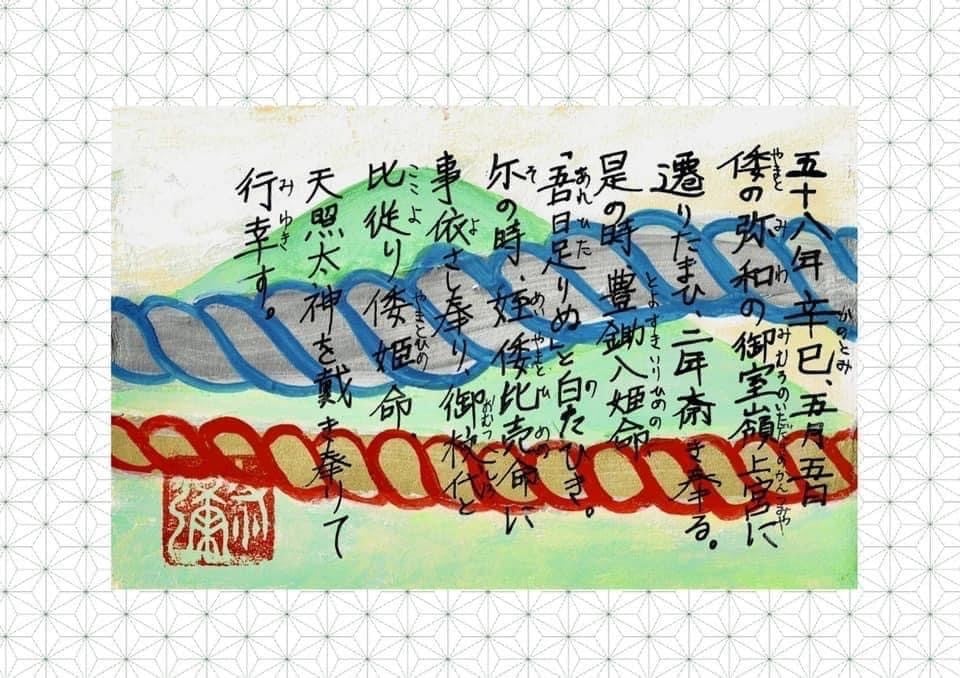 五十八年辛巳、五月五日
倭の弥和の御室嶺上宮に
遷りたまひ、二年斎き奉る。
是の時、豊鋤入姫命、
「吾日足りぬ」と白たひき。
尓の時、姪倭比売命に
事依さし奉り、御杖代と
比従り倭姫命、
天照太神を戴き奉りて
行幸す。